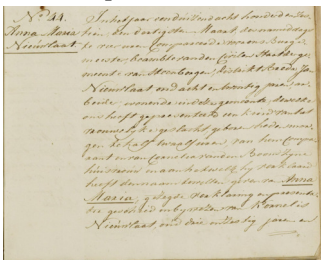 N.º 44.
Anna Maria
Nieuwlaat
In het jaar een duizend acht honderd en
tien, den dertigsten Maart, des namiddags
voor ons Compareerde voor ons Burge-
meester, Beambte van den Civilen Staat der ge-
meente van Steenbergen, District Breda, Jan
Nieuwlaat oud acht en twintig jaar, ar-
beider, wonende in deze gemeente, dewelke
ons heeft gepresenteerd een kind van het
vrouwelijke geslacht, geboren heden mor-
gen de half twaalf uren, van hem Compa-
rant en van Cornelia
huisvrouw en aan hetwelk hij verklaard
heeft den naam te willen geven van Anna
Maria, gezegde verklaring en presenta-
tie geschied in bijwezen van Cornelis
Nieuwlaat, oud drie en zestig jaren en